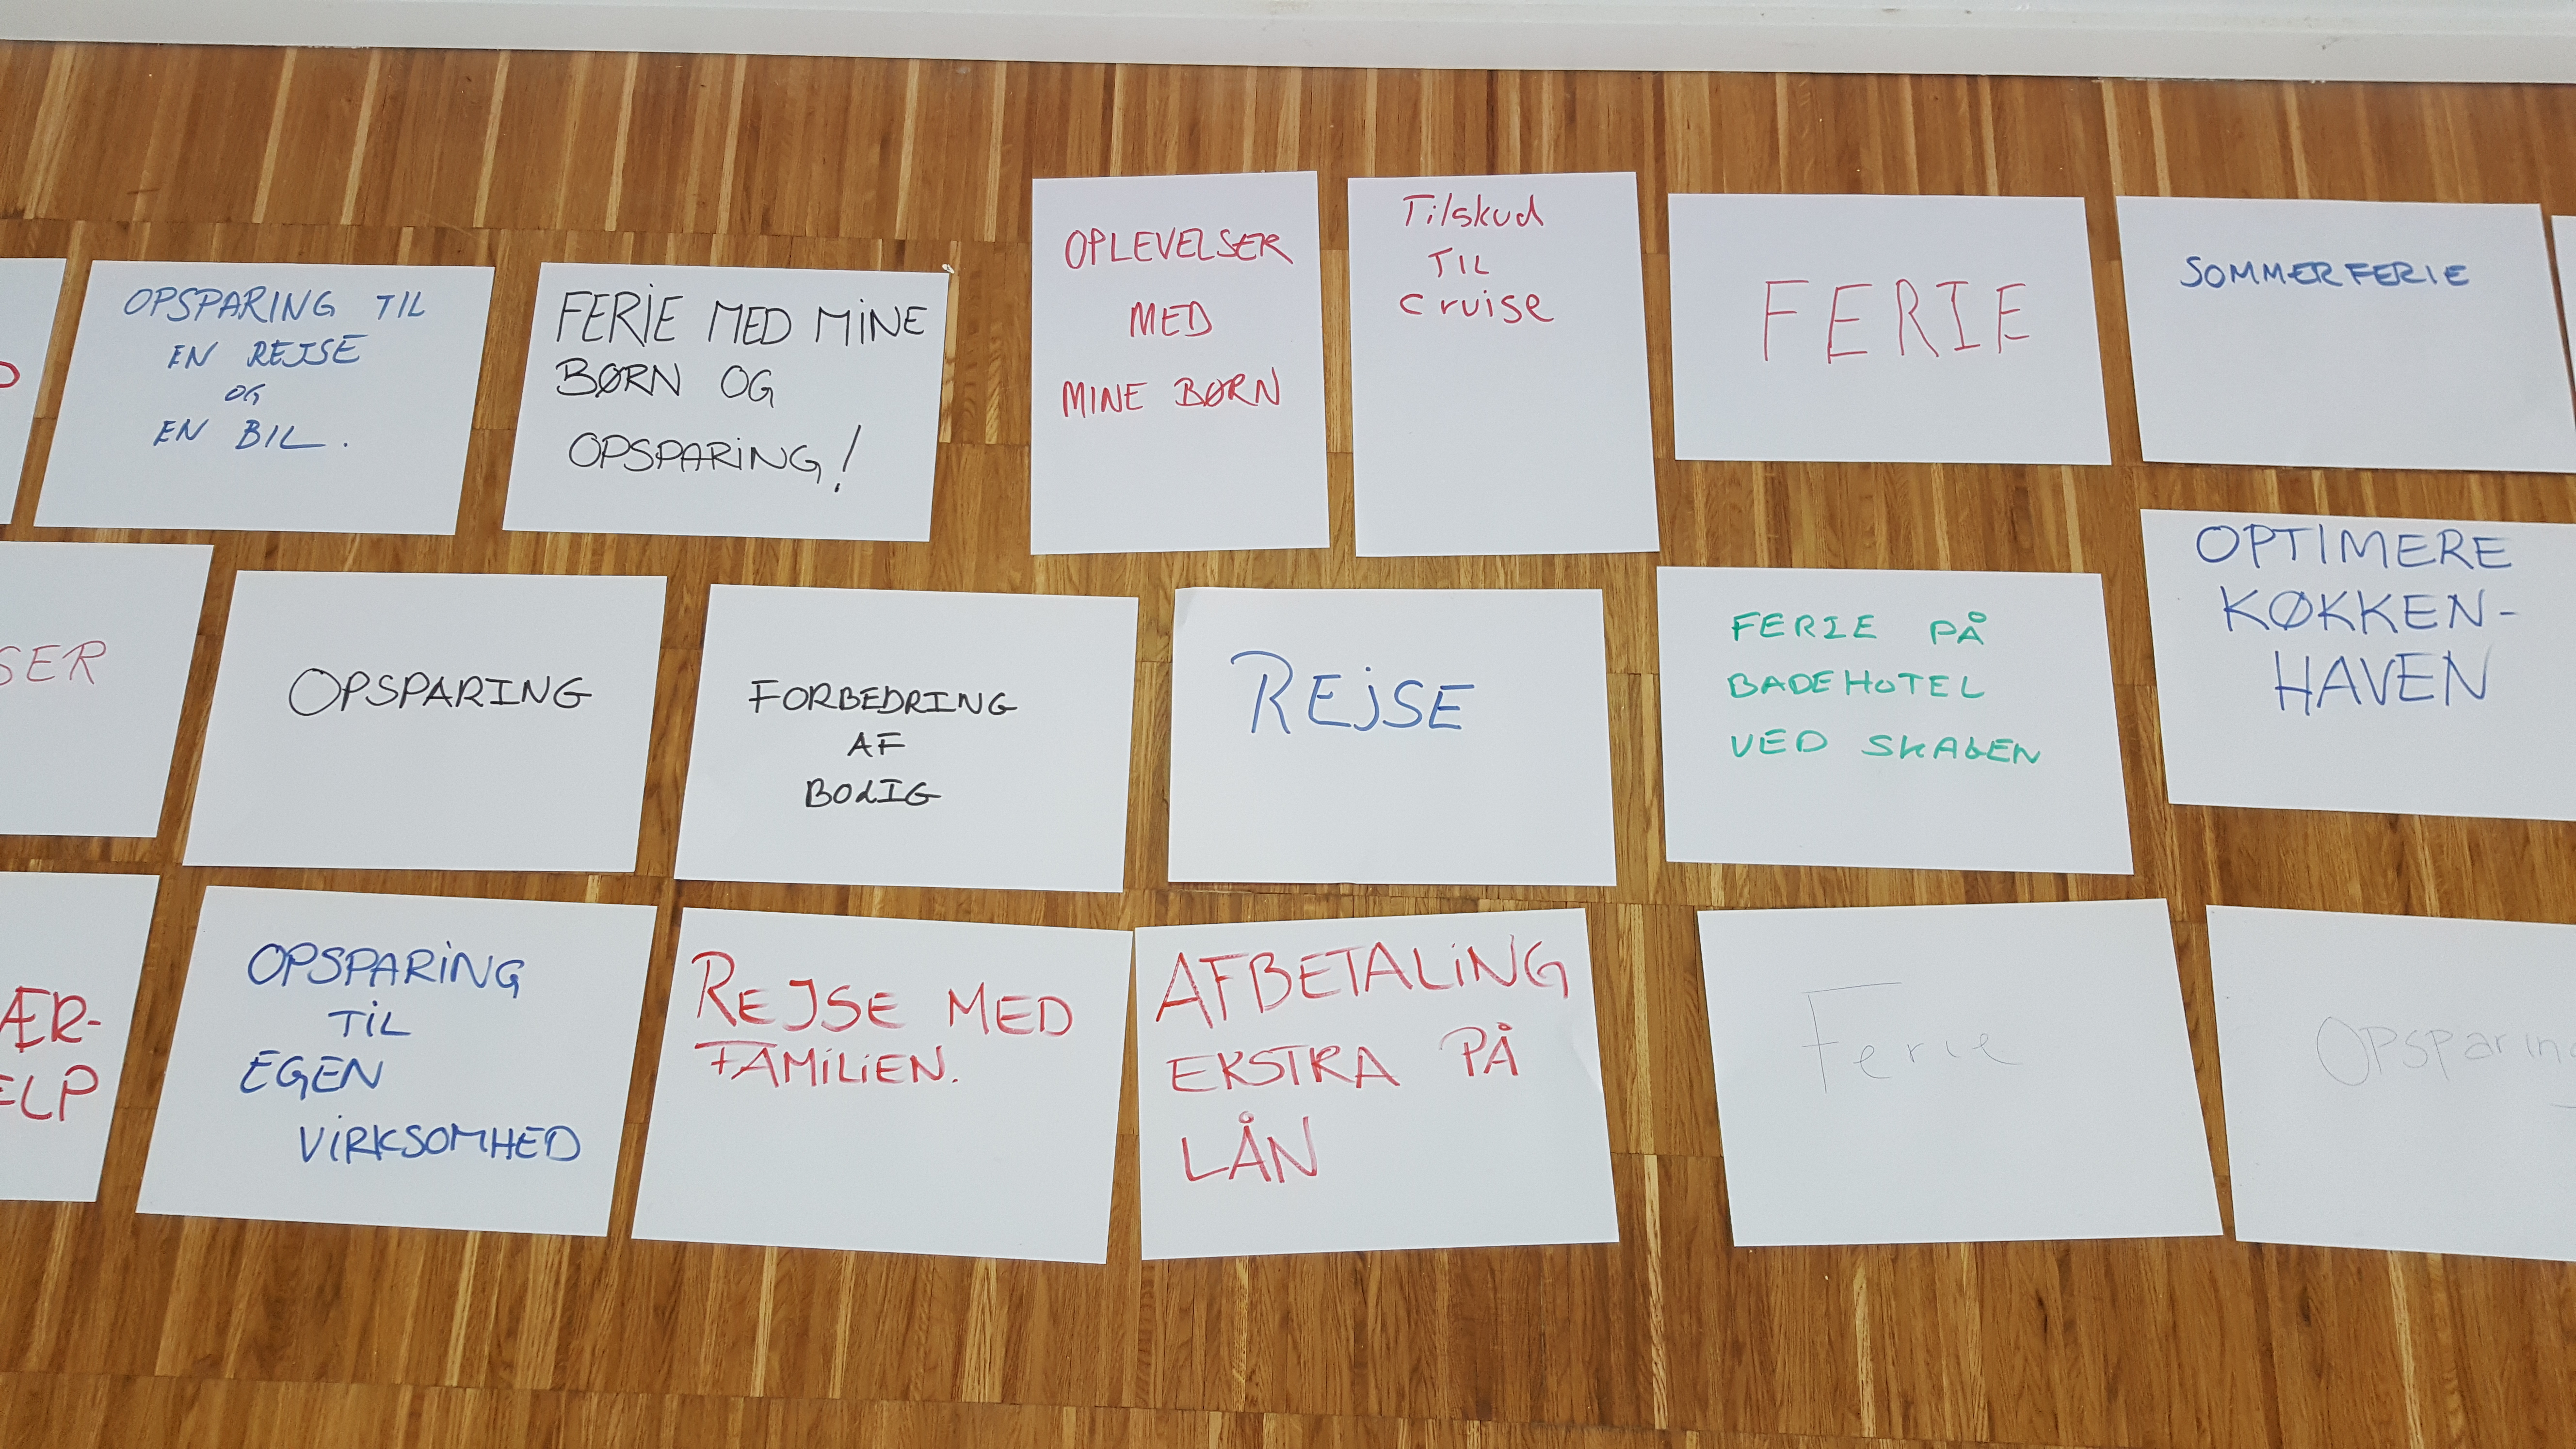 OPSPARING TIL
EN REJSE
OG
EN BIL.
FERIE MED MINE
BØRN OG
OPSPARING!
OPLEVELSER
MED
MINE BØRN
Tilskud
TIL
cruise
FERIE
SOMMERFERIE
SER
OPSPARING
FORBEDRING
AF
BOLIG
REJSE
FERIE PÅ
BADEHOTEL
VED SKAGEN
OPTIMERE
KØKKEN-
HAVEN
ÆR-
ELP
OPSPARING
TIL
EGEN
VIRKSOMHED
REJSE MED
FAMILIEN.
AFBETALING
EKSTRA PÅ
LÅN
Ferie
Opsparing